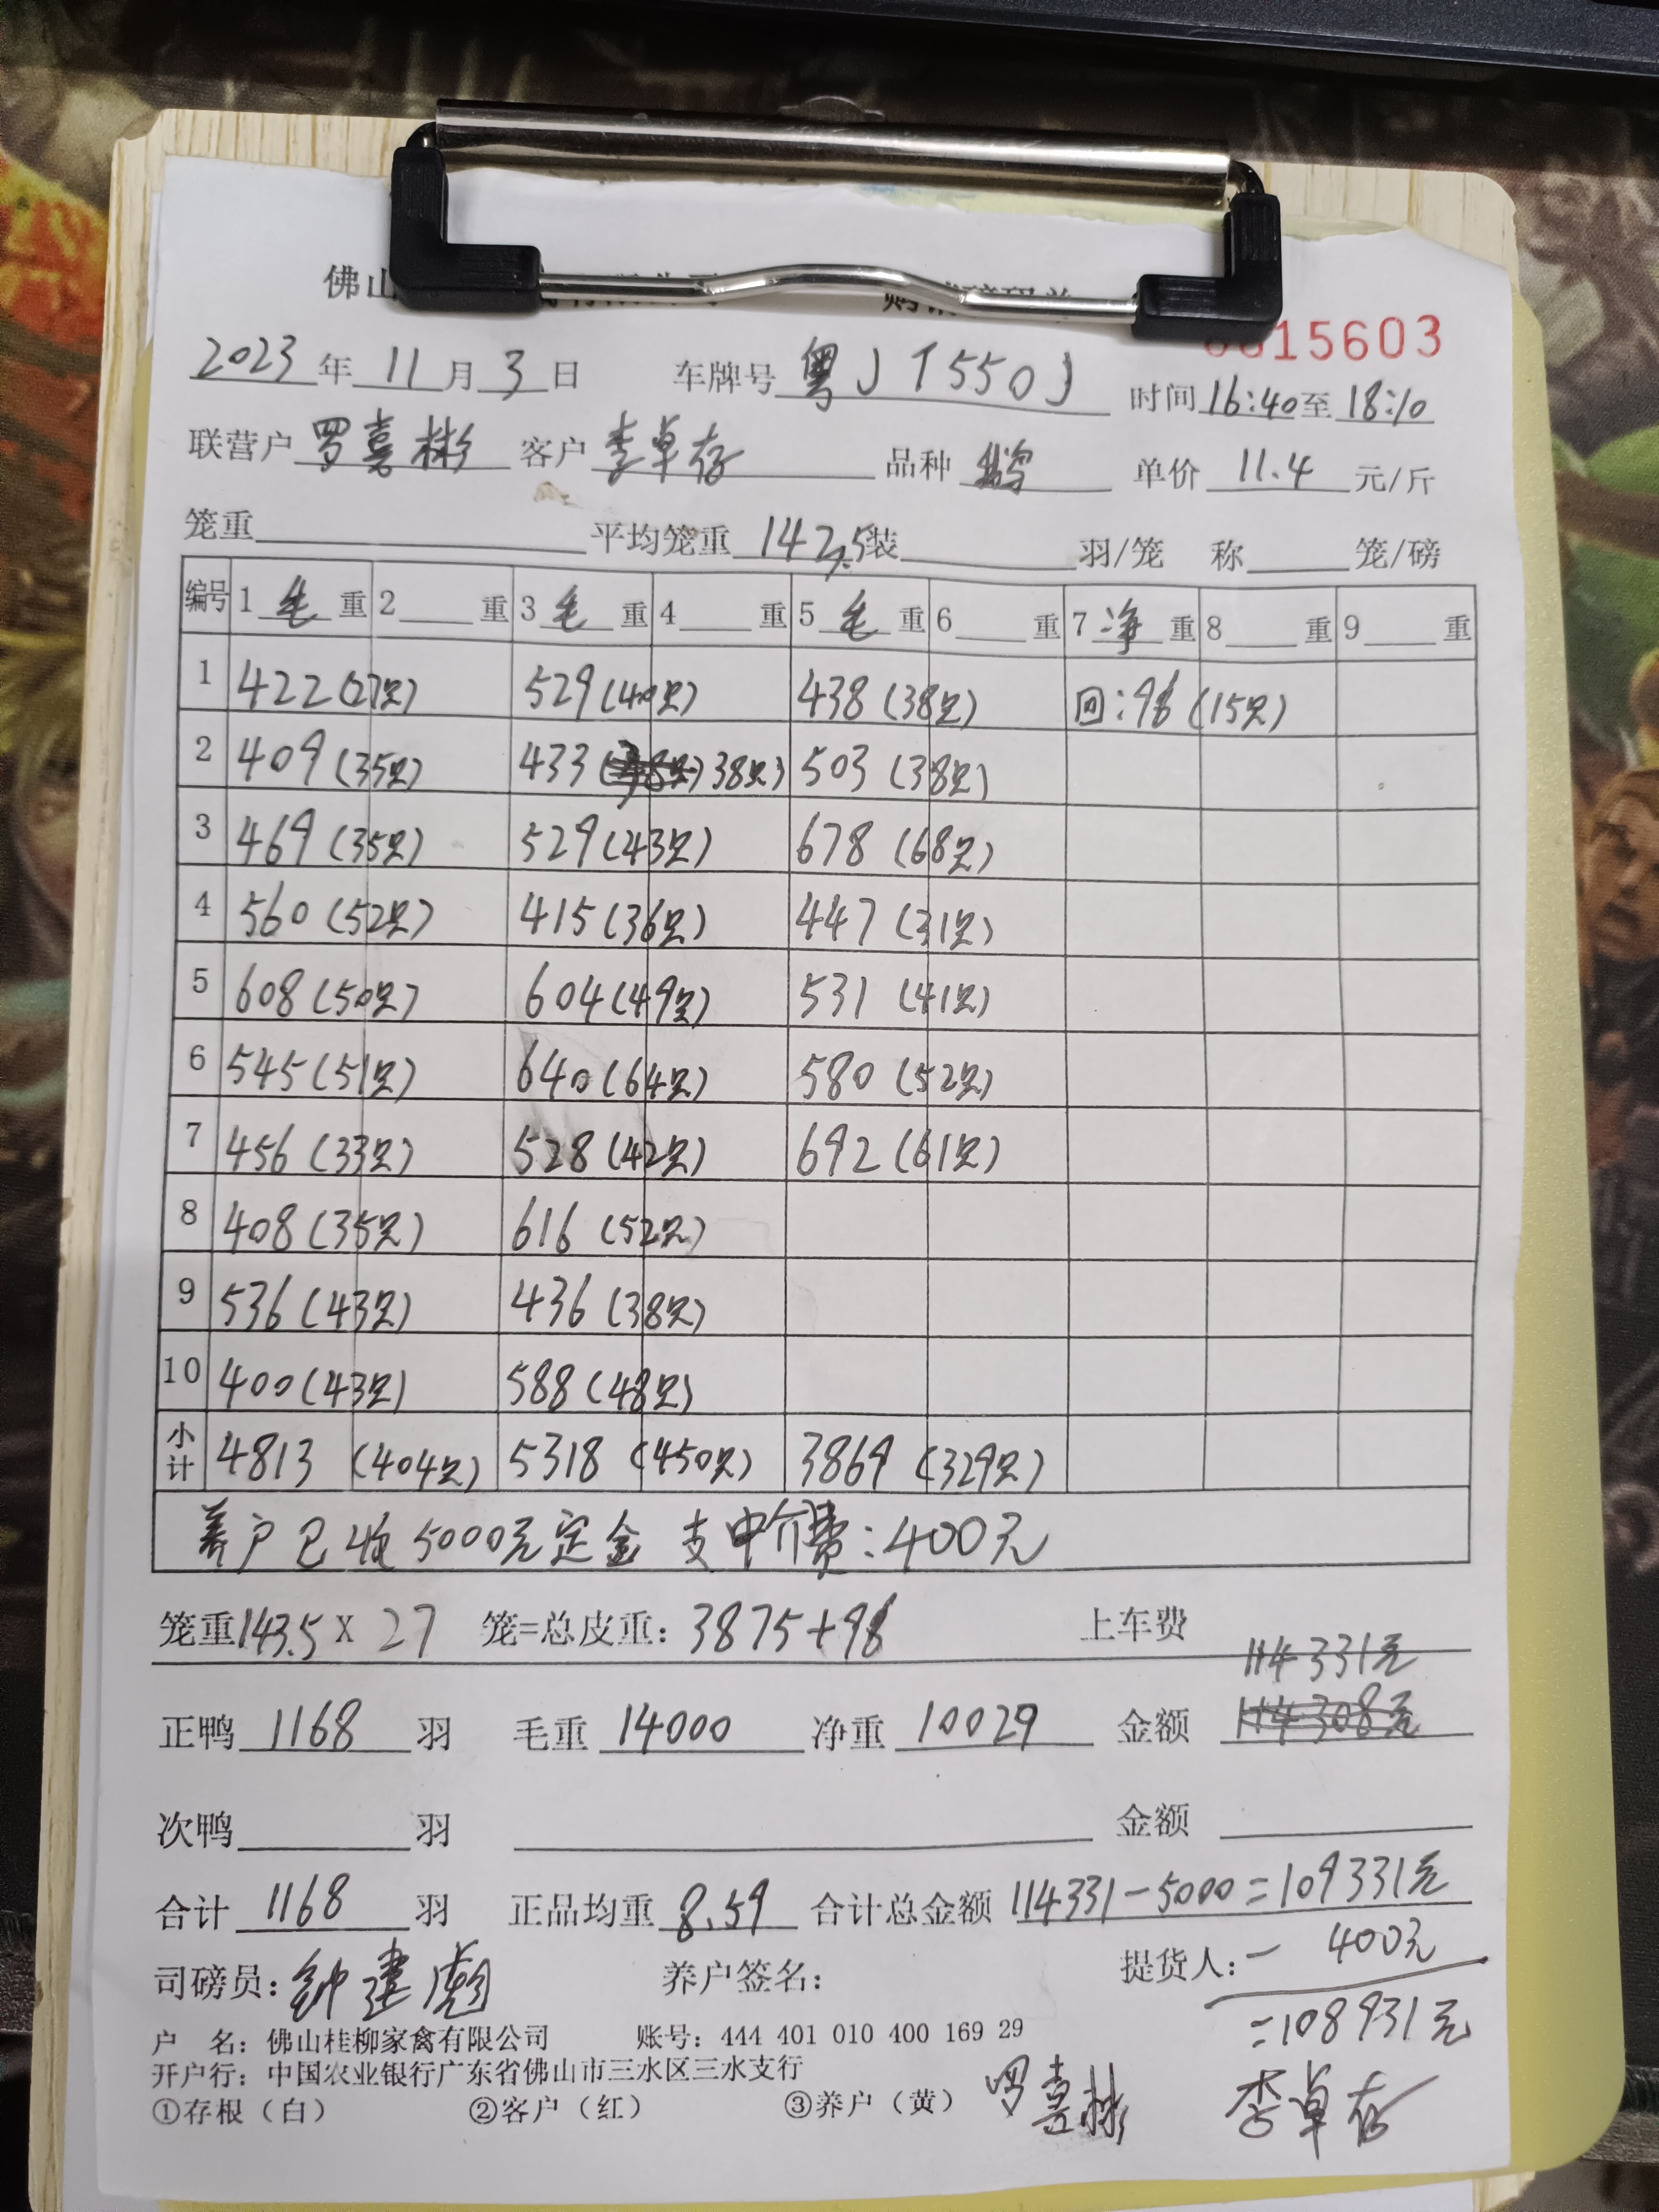 佛山
15603
2023年11月3日 车牌号 粤JT550J 时间16:40至18:10
联营户 罗喜彬 客户 李卓存 品种 鹅 单价 11.4 元/斤
笼重 平均笼重 装 羽/笼 称 笼/磅
编号 1 毛 重 2 重 3 毛 重 4 重 5 毛 重 6 重 7 净 重 8 重 9 重
1 422(27只) 529(40只) 438(38只) 回:98(15只)
2 409(35只) 433 38只) 503(38只)
3 469(35只) 529(43只) 678(68只)
4 560(52只) 415(36只) 447(31只)
5 608(50只) 604(49只) 531(41只)
6 545(51只) 640(64只) 580(52只)
7 456(33只) 528(42只) 692(61只)
8 408(35只) 616(52只)
9 536(43只) 436(38只)
10 400(43只) 588(48只)
小计 4813 (404只) 5318 (450只) 3869 (329只)
养户已收5000元定金 支中介费:400元
笼重143.5 X 27 笼=总皮重: 3875+98 上车费
114331元
正鸭 1168 羽 毛重 14000 净重 10029 金额 114308元
次鸭 羽 金额
合计 1168 羽 正品均重 8.59 合计总金额 114331-5000=109331元
司磅员: 钟建 养户签名: 提货人: - 400元
=108931元
户 名: 佛山桂柳家禽有限公司 账号: 444 401 010 400 169 29
开户行: 中国农业银行广东省佛山市三水区三水支行
①存根(白) ②客户(红) ③养户(黄) 罗喜彬 李卓存